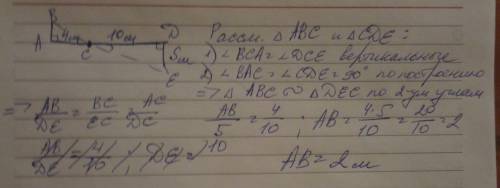 B
A 4см C 10см D
5м
E
Рассм. △ABC и △CDE:
1) ∠BCA = ∠DCE вертикальные
2) ∠BAC = ∠CDE = 90° по построению
=> △ABC ∾ △DEC по 2ум углам
=> AB/DE = BC/EC = AC/DC
AB/5 = 4/10 ; AB = 4·5/10 = 20/10 = 2
AB/DE = 4/10 ; DE = 10
AB = 2м